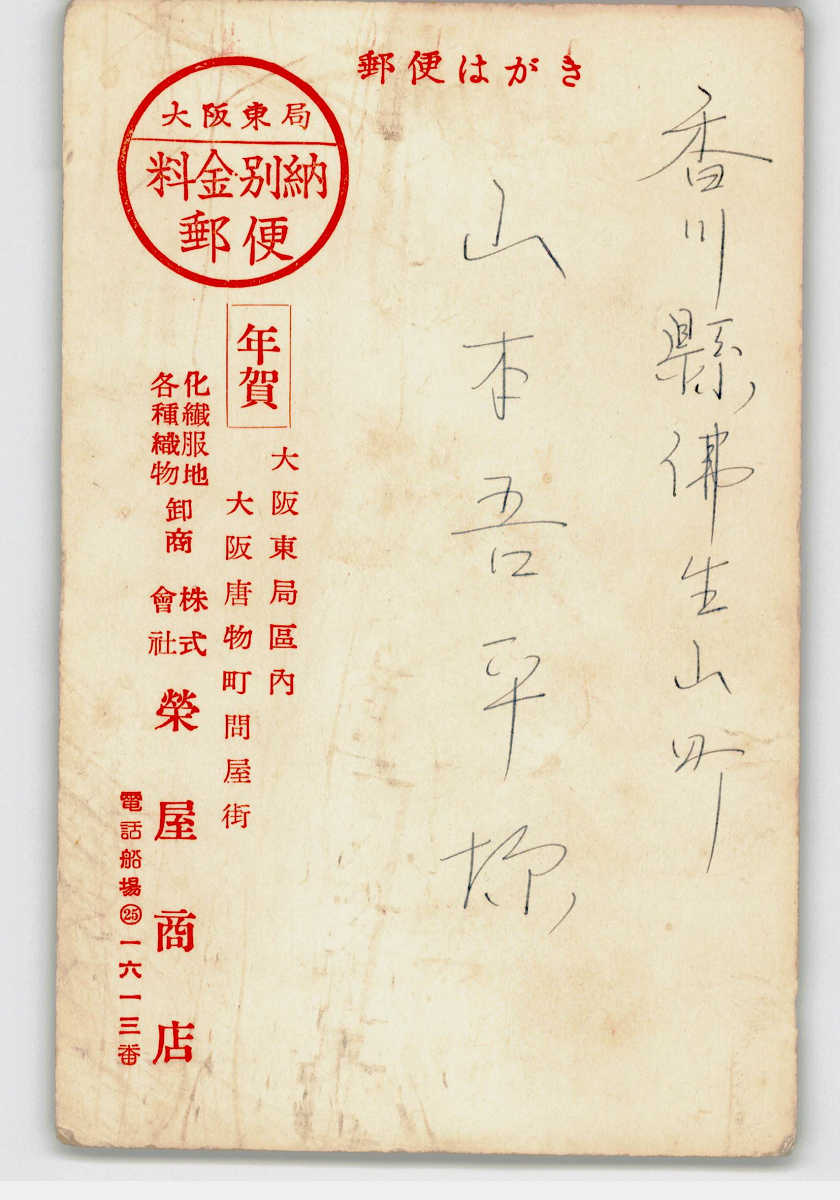 郵便はがき
大阪東局
料金別納
郵便
香川縣佛生山町
山本吾平様
年賀
大阪東局區內
大阪唐物町問屋街
化纖服地
各種織物
卸商
株式
會社
榮屋商店
電話船場㉕一六一三番